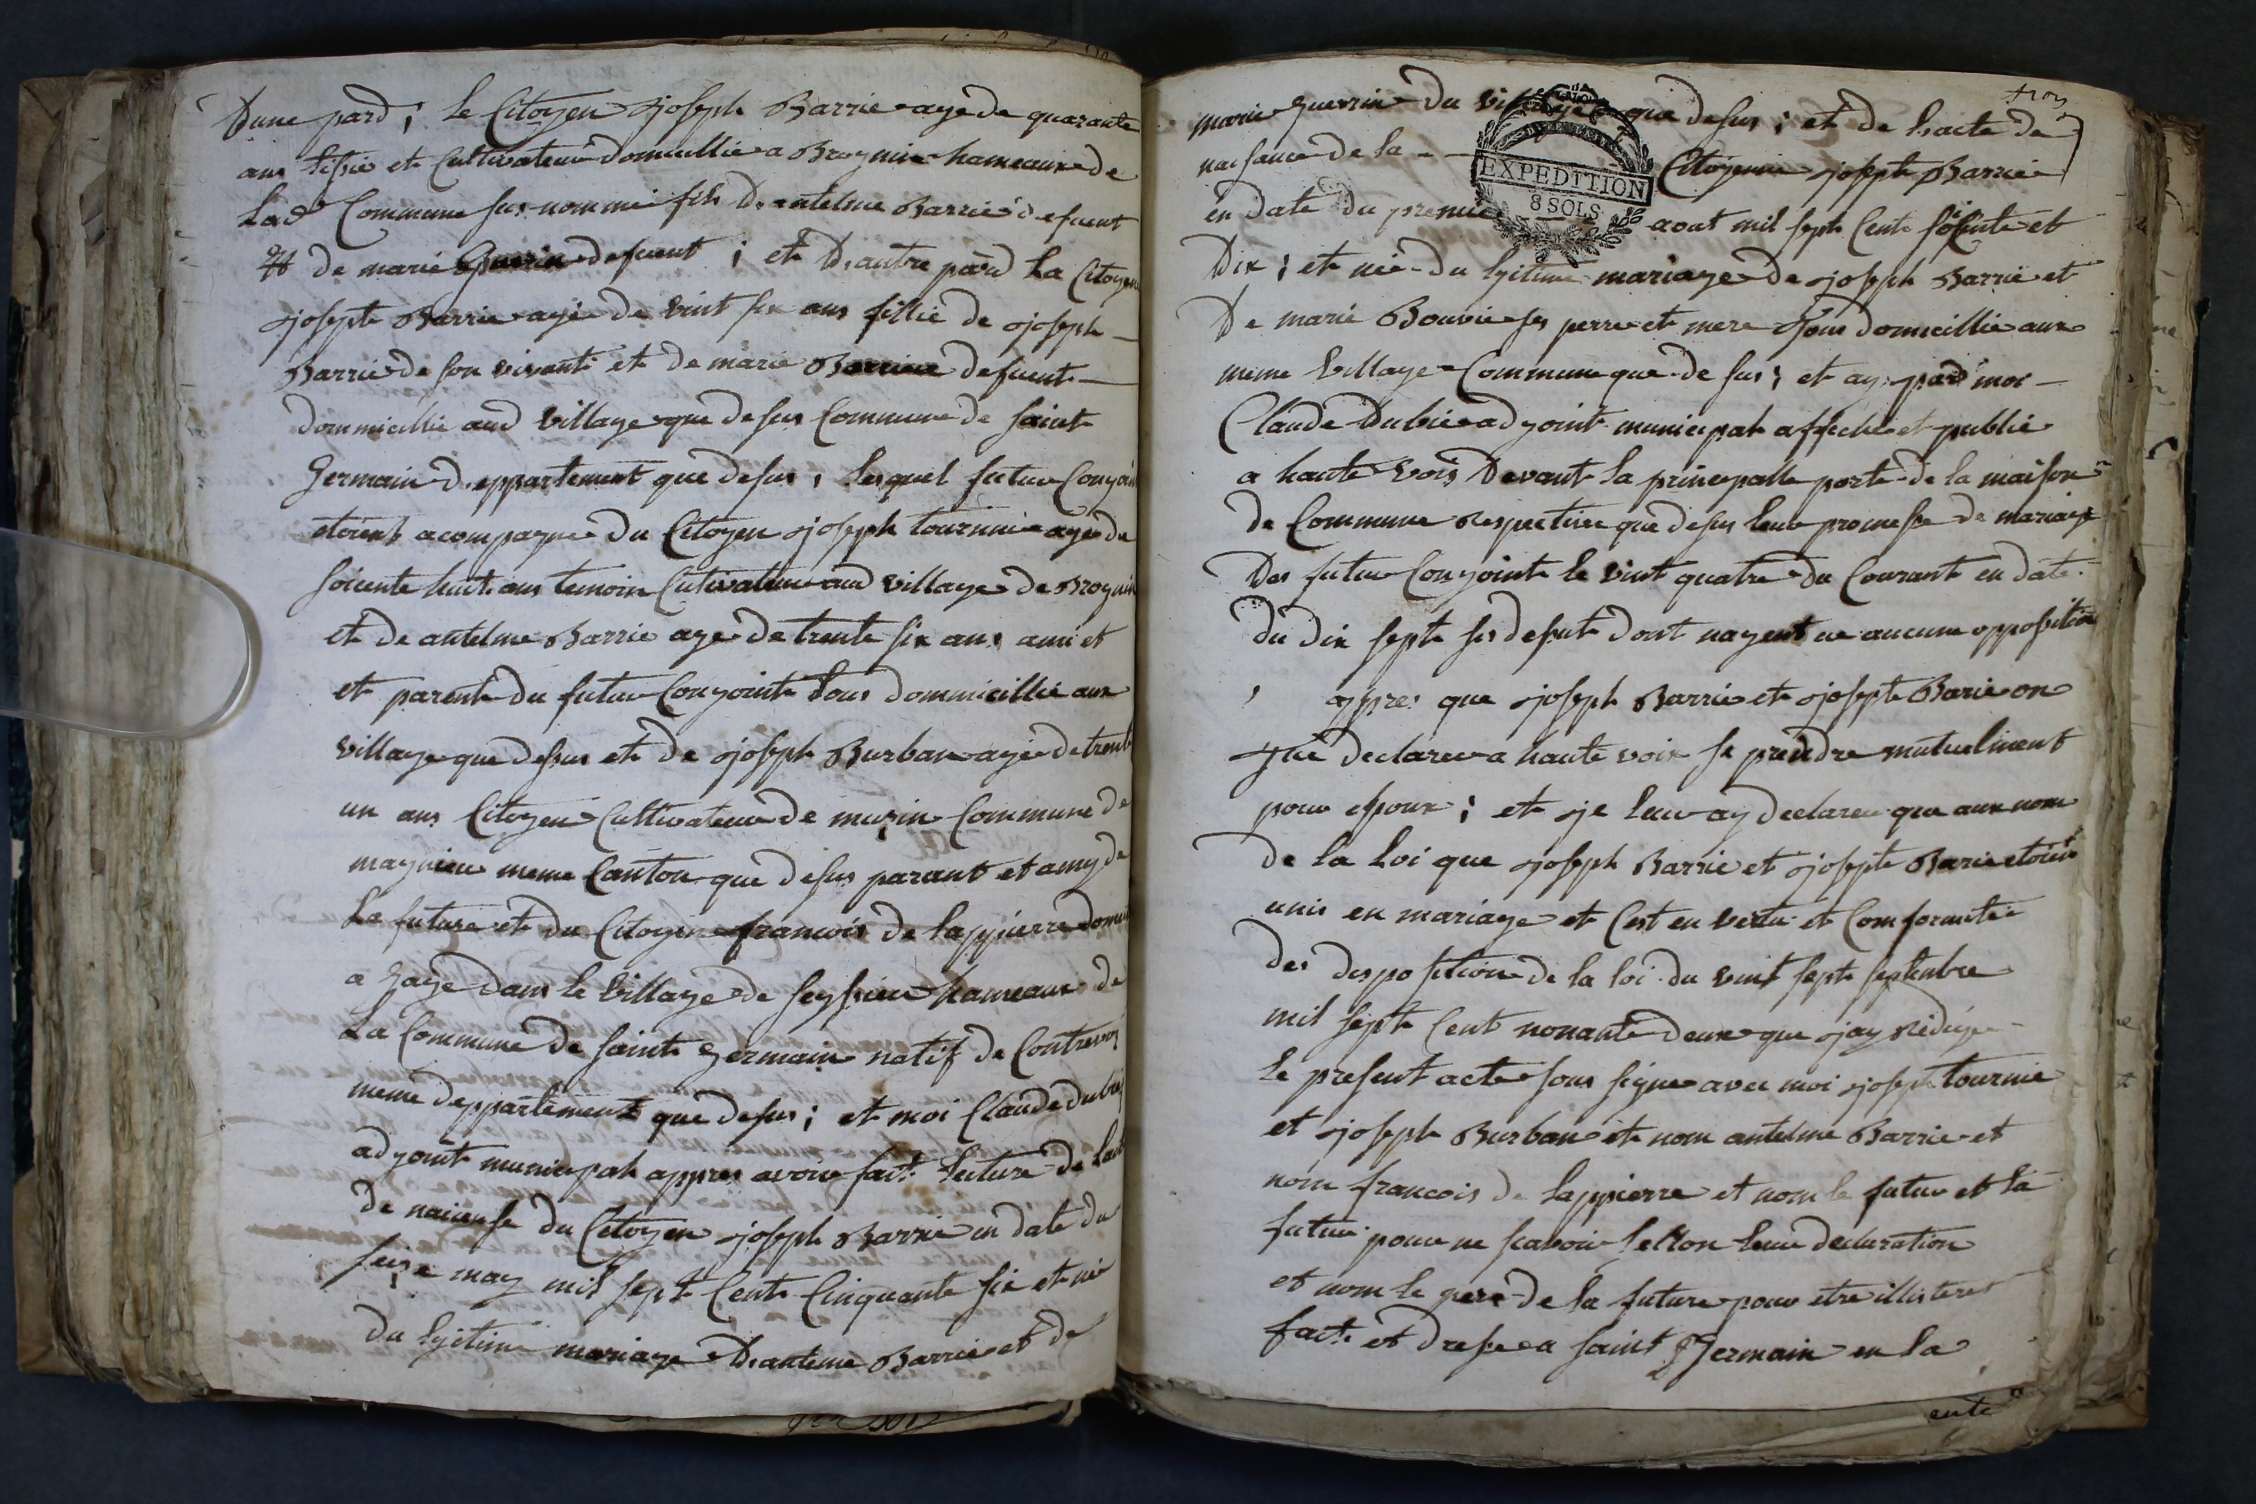 Dune pard ; le Citoyen joseph Barrie age de quarante
ans tissie et Cultivateur domicillie a Brognin hameaux de
Lad. Commune sus nomme fils D. antelme Barrie defuent
et de marie Guerrin defuent ; et D. autre pard La Citoyen
josepte Barrie agé de vint six ans fillie de joseph
Barrie de son vivant et de marie defuent
dommicillie aud village que desus Commune de saint
Germain d. eppartement que desus ; lesquel futur Conjoin
etoient acompagne du Citoyen joseph tournie age de
soicente huit ans temoin Cutivateur aud village de Brognin
et de antelme Barrie age de trente six ans ami et
et parent du futur Conjoint tous dommicillie aux
village que desus et de joseph Burban agé de trente
un ans Citoyen Cultivateur de musin Commune de
magnieu meme Canton que desus parant et amy de
La future et du Citoyen francois de lappierre domici
a gage dans le village de seyssieu hameaux de
La Commune de saint germain natif de Contrevos
meme deppartement que desus ; et moi Claude dubié
adjoint municipal appres avoir fait lecture de Lact
de naicense du Citoyen joseph Barrie en date du
seize may mil sept Cent Cinquante six et né
du lgitime mariage D. anteme Barrie et de
trois
marie guerrin du village que desus ; et de lacte de
naissance de la Citoyenne josepte Barrie
EXPEDITION
8 SOLS
en date du premier aout mil sept Cent soicente et
Dix ; et née du lgitime mariage de joseph Barrie et
De marie Bouvie ses perre et mere tous domicillie aux
meme village Commune que de sus ; et ay pard moi
Claude Dubie adjoint municipal affiché et publie
a haute vois Devant la principalle porte de la maison
de Commune respective que desus leur promesse de mariage
Des futur Conjoint le vint quatre du Courant en date
du dix sept sis desut dont nayent ue aucune oppositon
appres que joseph Barrie et josepte Barie on
declare a haute voix se prendre mutuelment
pour epoux ; et je leur ay declaree que aux nom
de la loi que joseph Barrie et josepte Barie etoient
unis en mariage et Cest en vertu et Comformite
des desposition de la loi du vint sept septenbre
mil sept Cent nonante deux que jay rédigé
le present acte sous signe avec moi joseph tournie
et joseph Burban et nom antelme Barrie et
nom francois de lappierre et nom le futur et la
futur pour ne scavoir sellon leur declaration
et nom le pere de la future pour etre illisteré
fact et dresse a saint Germain en la